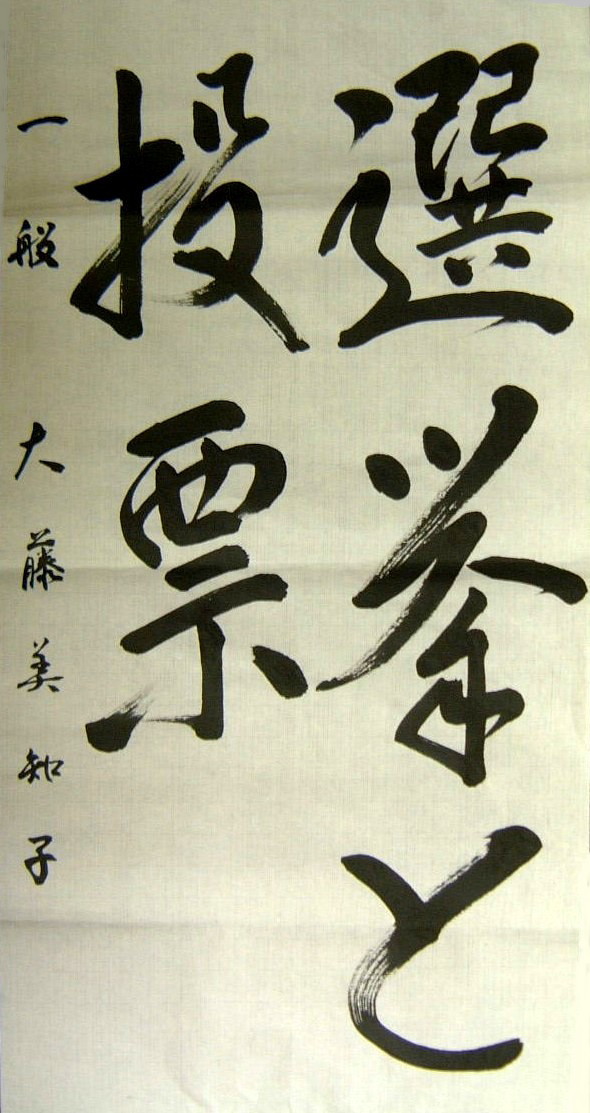 選挙と
投票
一般 大藤美知子